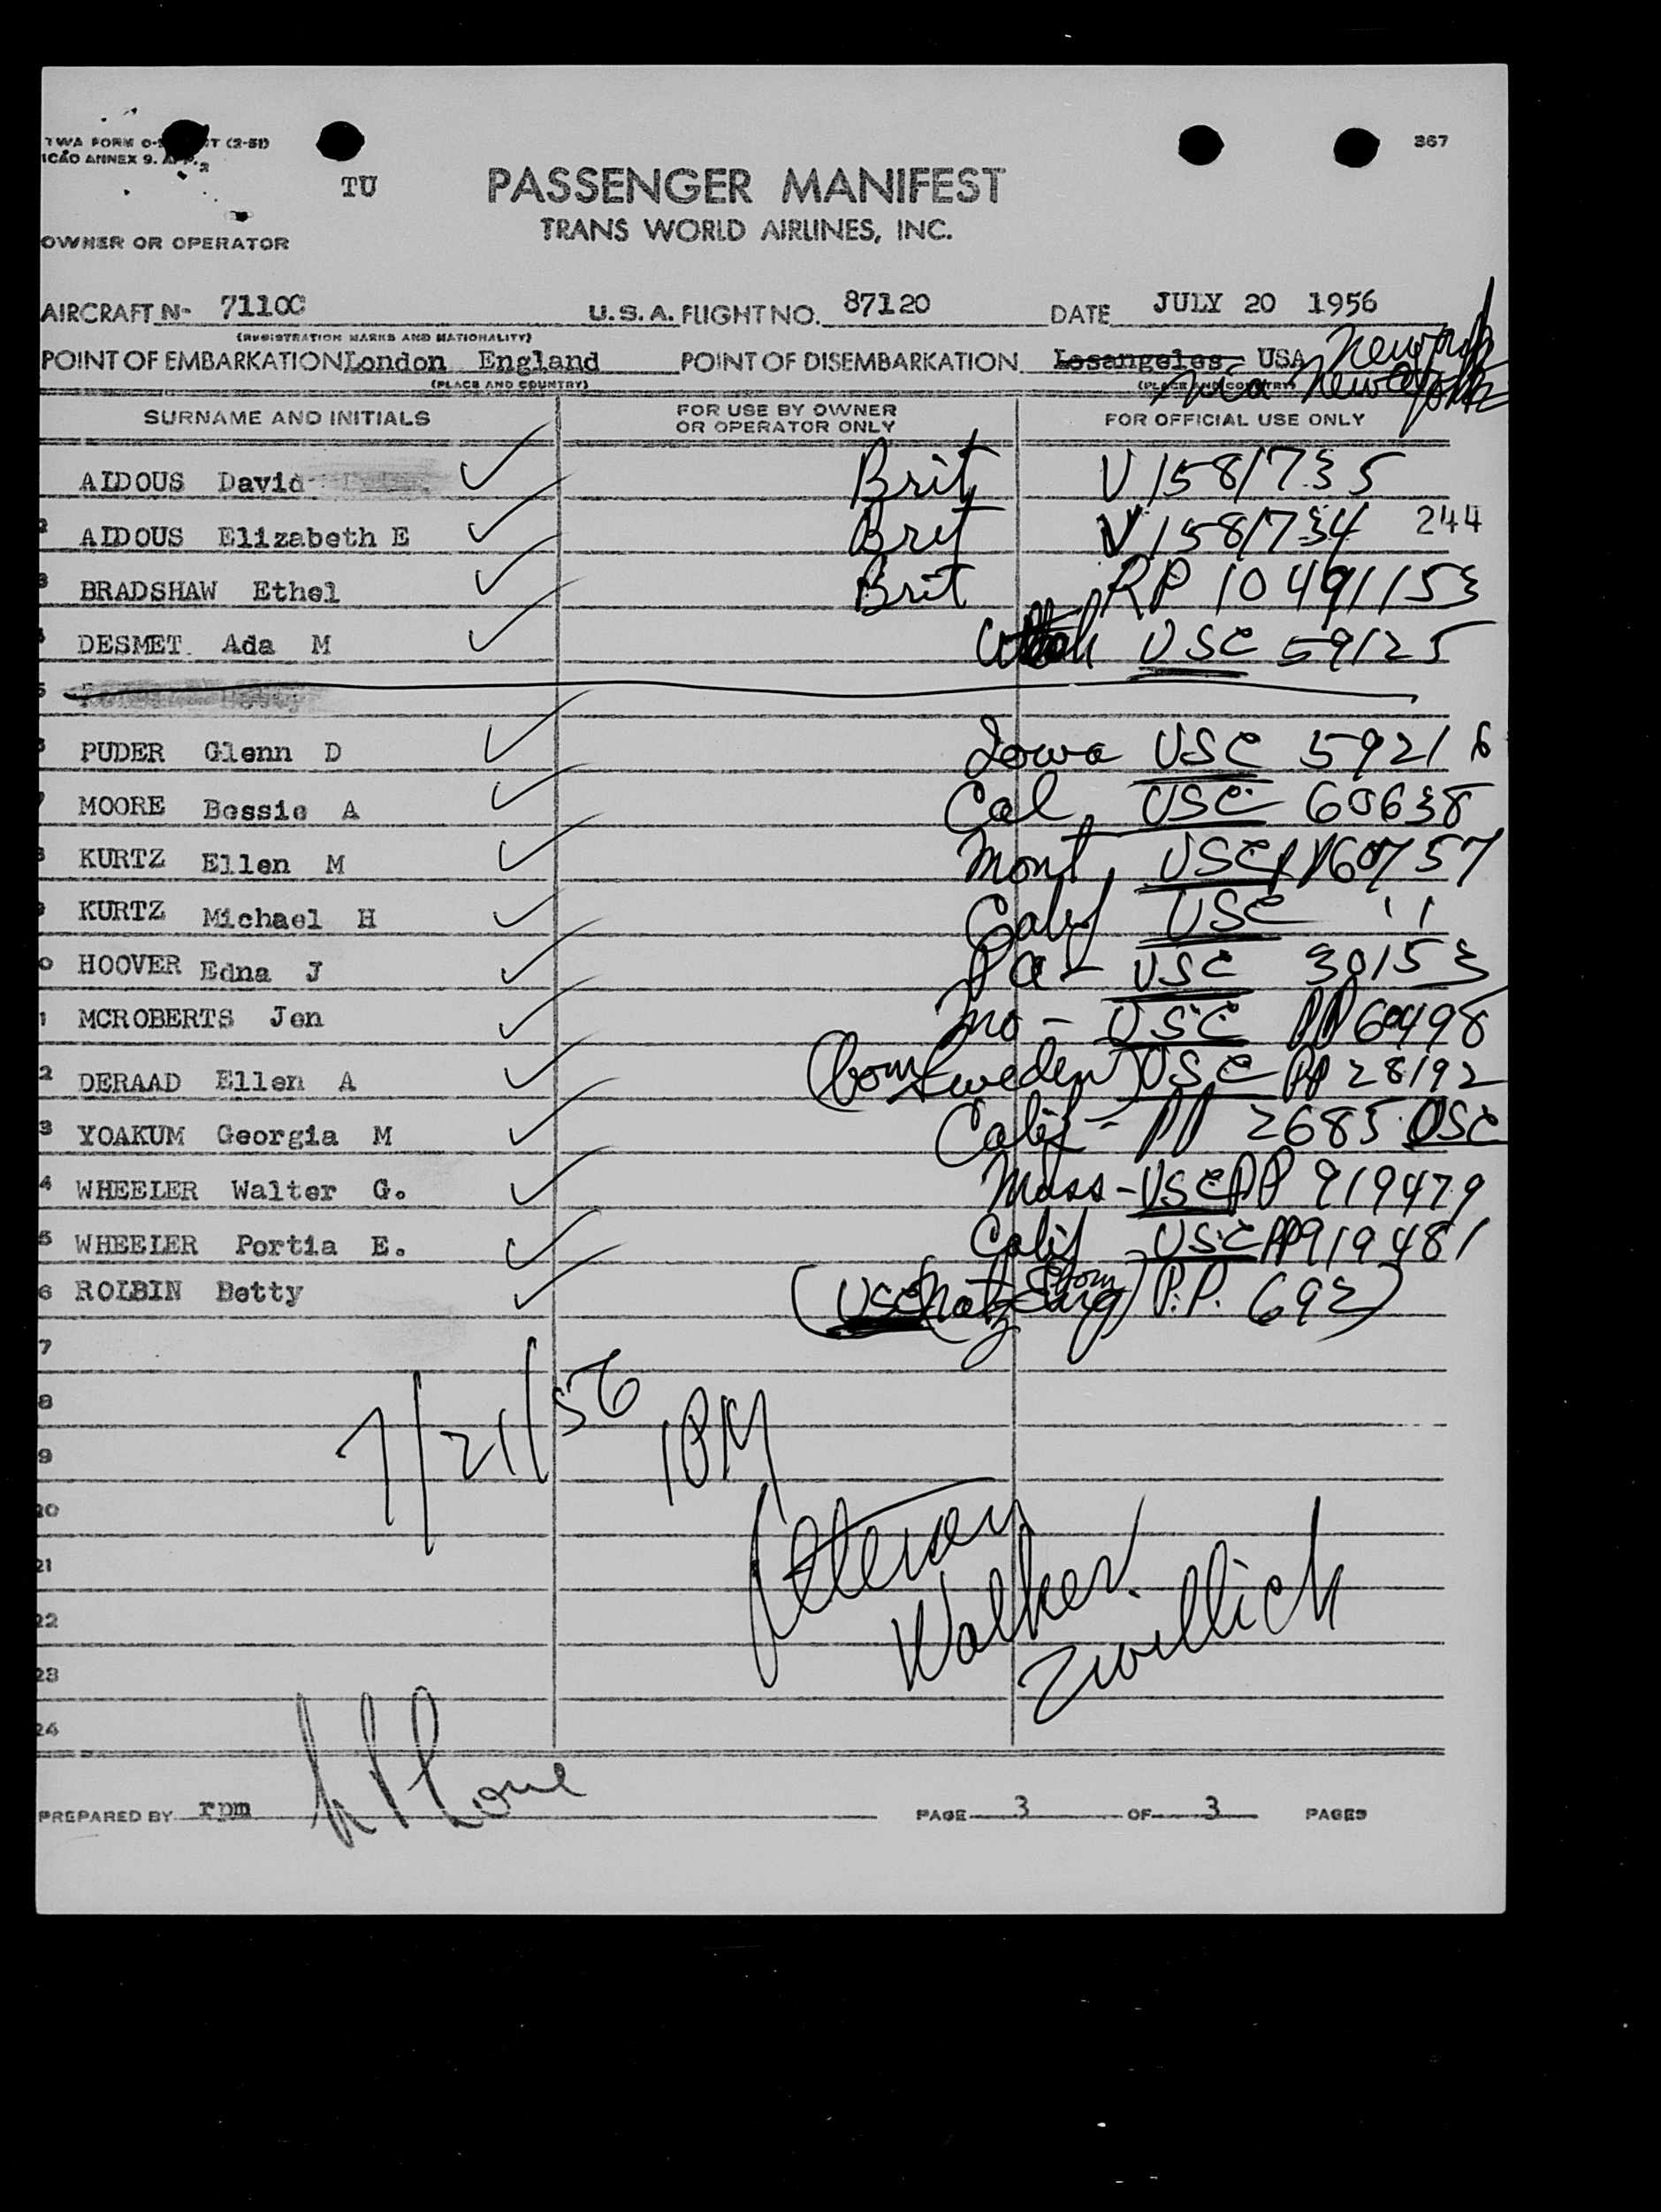 TWA FORM O- T (2-51)
ICAO ANNEX 9. APP. 2
367
TU
PASSENGER MANIFEST
TRANS WORLD AIRLINES, INC.
OWNER OR OPERATOR
AIRCRAFT N- 7110C U.S.A. FLIGHT NO. 87120 DATE JULY 20 1956
(REGISTRATION MARKS AND NATIONALITY)
POINT OF EMBARKATION London England POINT OF DISEMBARKATION Losangeles USA New York
(PLACE AND COUNTRY) (PLACE AND COUNTRY) via New York
SURNAME AND INITIALS FOR USE BY OWNER OR OPERATOR ONLY FOR OFFICIAL USE ONLY
AIDOUS David Brit V 1581735
2 AIDOUS Elizabeth E Brit V 1581734 244
3 BRADSHAW Ethel Brit RP 10491153
DESMET. Ada M Utah USC 59125
5
PUDER Glenn D Iowa USC 59216
7 MOORE Bessie A Cal, USC 60638
8 KURTZ Ellen M Mont, USC PP60757
9 KURTZ Michael H Calif USC 11
0 HOOVER Edna J Pa - USC 30153
1 MCROBERTS Jen Mo - USC PP 60498
2 DERAAD Ellen A (born Sweden) USC PP 28192
3 YOAKUM Georgia M Calif - PP 2685 USC
4 WHEELER Walter G. Mass - USC PP 919479
5 WHEELER Portia E. Calif - USC PP 919481
6 ROLBIN Betty (USC natz born Eng) P.P. 692)
7
8
9
20
21
22
23
24
7/21/56 1PM
Walker
Zwillich
PREPARED BY rpm PAGE 3 OF 3 PAGES